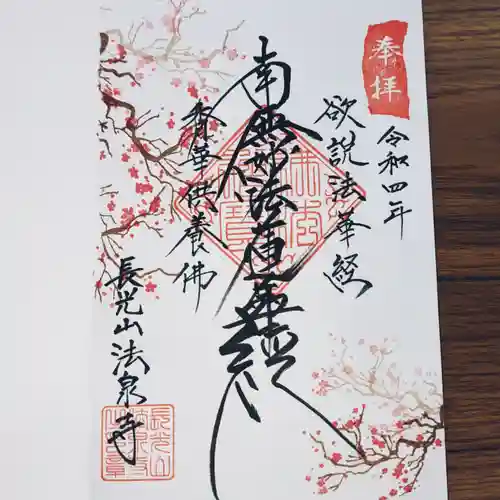 奉拝
令和四年
欲説法華経
南無妙法蓮華経
香華供養佛
長光山法泉寺